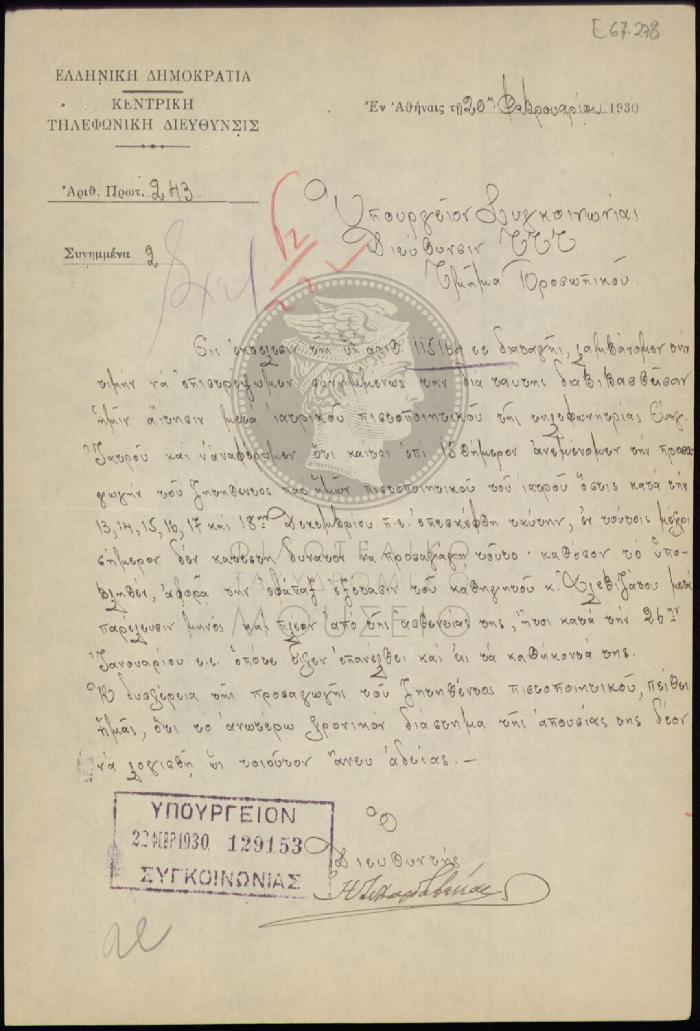 Ε 67.278
ΕΛΛΗΝΙΚΗ ΔΗΜΟΚΡΑΤΙΑ
ΚΕΝΤΡΙΚΗ
ΤΗΛΕΦΩΝΙΚΗ ΔΙΕΥΘΥΝΣΙΣ
Ἐν Ἀθήναις τῇ 20ῃ Φεβρουαρίου 1930
Ἀριθ. Πρωτ. 243
Συνημμένα 2
Ὑπουργεῖον Συγκοινωνίας
Διεύθυνσιν ΤΤΤ
Τμῆμα Προσωπικοῦ
Εἰς ἐκτέλεσιν τῆς ὑπ' ἀριθ. διαταγῆς, λαμβάνομεν τὴν
τιμὴν νὰ ἐπιστρέψωμεν συνημμένως τὴν διὰ ταύτης διαβιβασθεῖσαν
ἡμῖν αἴτησιν μετὰ ἰατρικοῦ πιστοποιητικοῦ τῆς τηλεφωνητρίας Εὐαγ.
Ἰατροῦ καὶ ν' ἀναφέρωμεν ὅτι καίτοι ἐπὶ 15θήμερον ἀνεμένομεν τὴν προσα-
γωγὴν τοῦ ζητηθέντος παρ' ἡμῶν πιστοποιητικοῦ τοῦ ἰατροῦ ὅστις κατὰ τὴν
13, 14, 15, 16, 17 καὶ 18ην Δεκεμβρίου π.ἔ. ἐπεσκέφθη ταύτην, ἐν τούτοις μέχρι
σήμερον δὲν κατέστη δυνατὸν νὰ προσαγάγῃ τοῦτο· καθόσον τὸ ὑπο-
βληθέν, ἀφορᾶ τὴν ἐφάπαξ ἐξέτασιν τοῦ καθηγητοῦ κ. Χλεβιζάτου μετὰ
παρέλευσιν μηνὸς καὶ πλέον ἀπὸ τῆς ἀσθενείας της, ἤτοι κατὰ τὴν 26ην
Ἰανουαρίου ἐ.ἔ. ὁπότε εἶχεν ἐπανέλθει καὶ εἰς τὰ καθήκοντά της.
Ἡ δυσχέρεια τῆς προσαγωγῆς τοῦ ζητηθέντος πιστοποιητικοῦ, πείθει
ἡμᾶς, ὅτι τὸ ἀνωτέρω χρονικὸν διάστημα τῆς ἀπουσίας της δέον
νὰ λογισθῇ ὡς τοιοῦτον ἄνευ ἀδείας.—
ΦΙΛΟΤΕΛΙΚΟ
ΤΑΧΥΔΡΟΜΙΚΟ
ΜΟΥΣΕΙΟ
ΥΠΟΥΡΓΕΙΟΝ
22 ΦΕΒΡ 1930 129153
ΣΥΓΚΟΙΝΩΝΙΑΣ
Ὁ
Διευθυντὴς